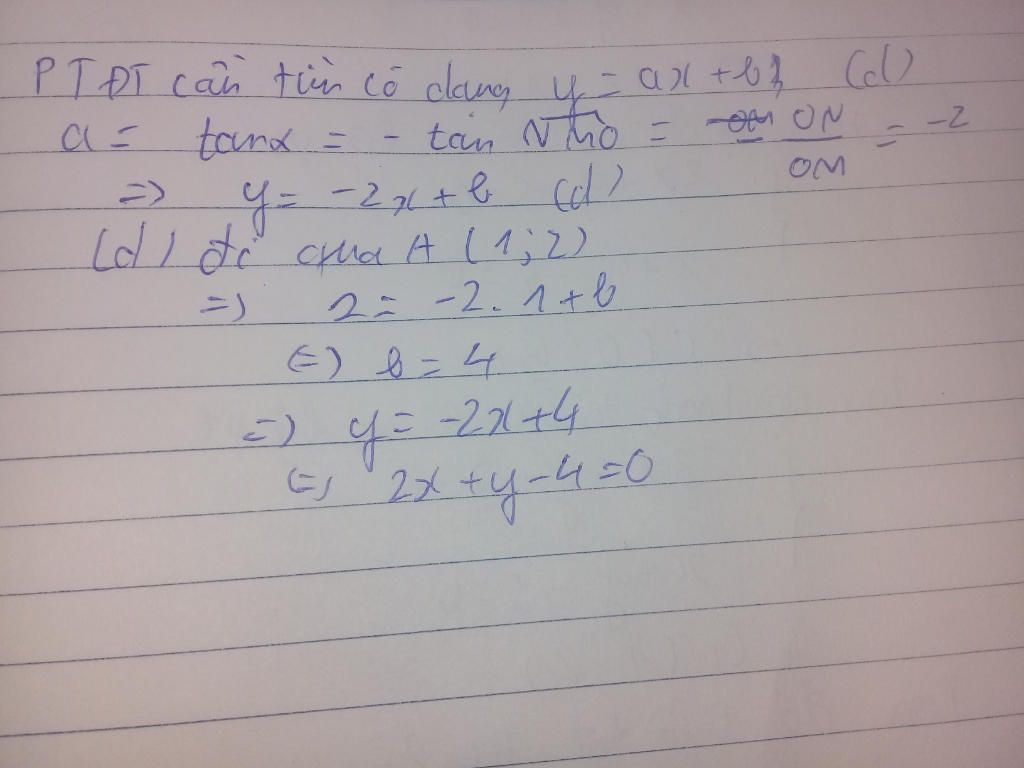 PTĐT cần tìm có dạng y = ax + b, (d)
a = tanα = - tan NMO = - ON/OM = -2
=> y = -2x + b (d)
(d) đi qua A (1; 2)
=> 2 = -2. 1 + b
<=> b = 4
=> y = -2x + 4
<=> 2x + y - 4 = 0